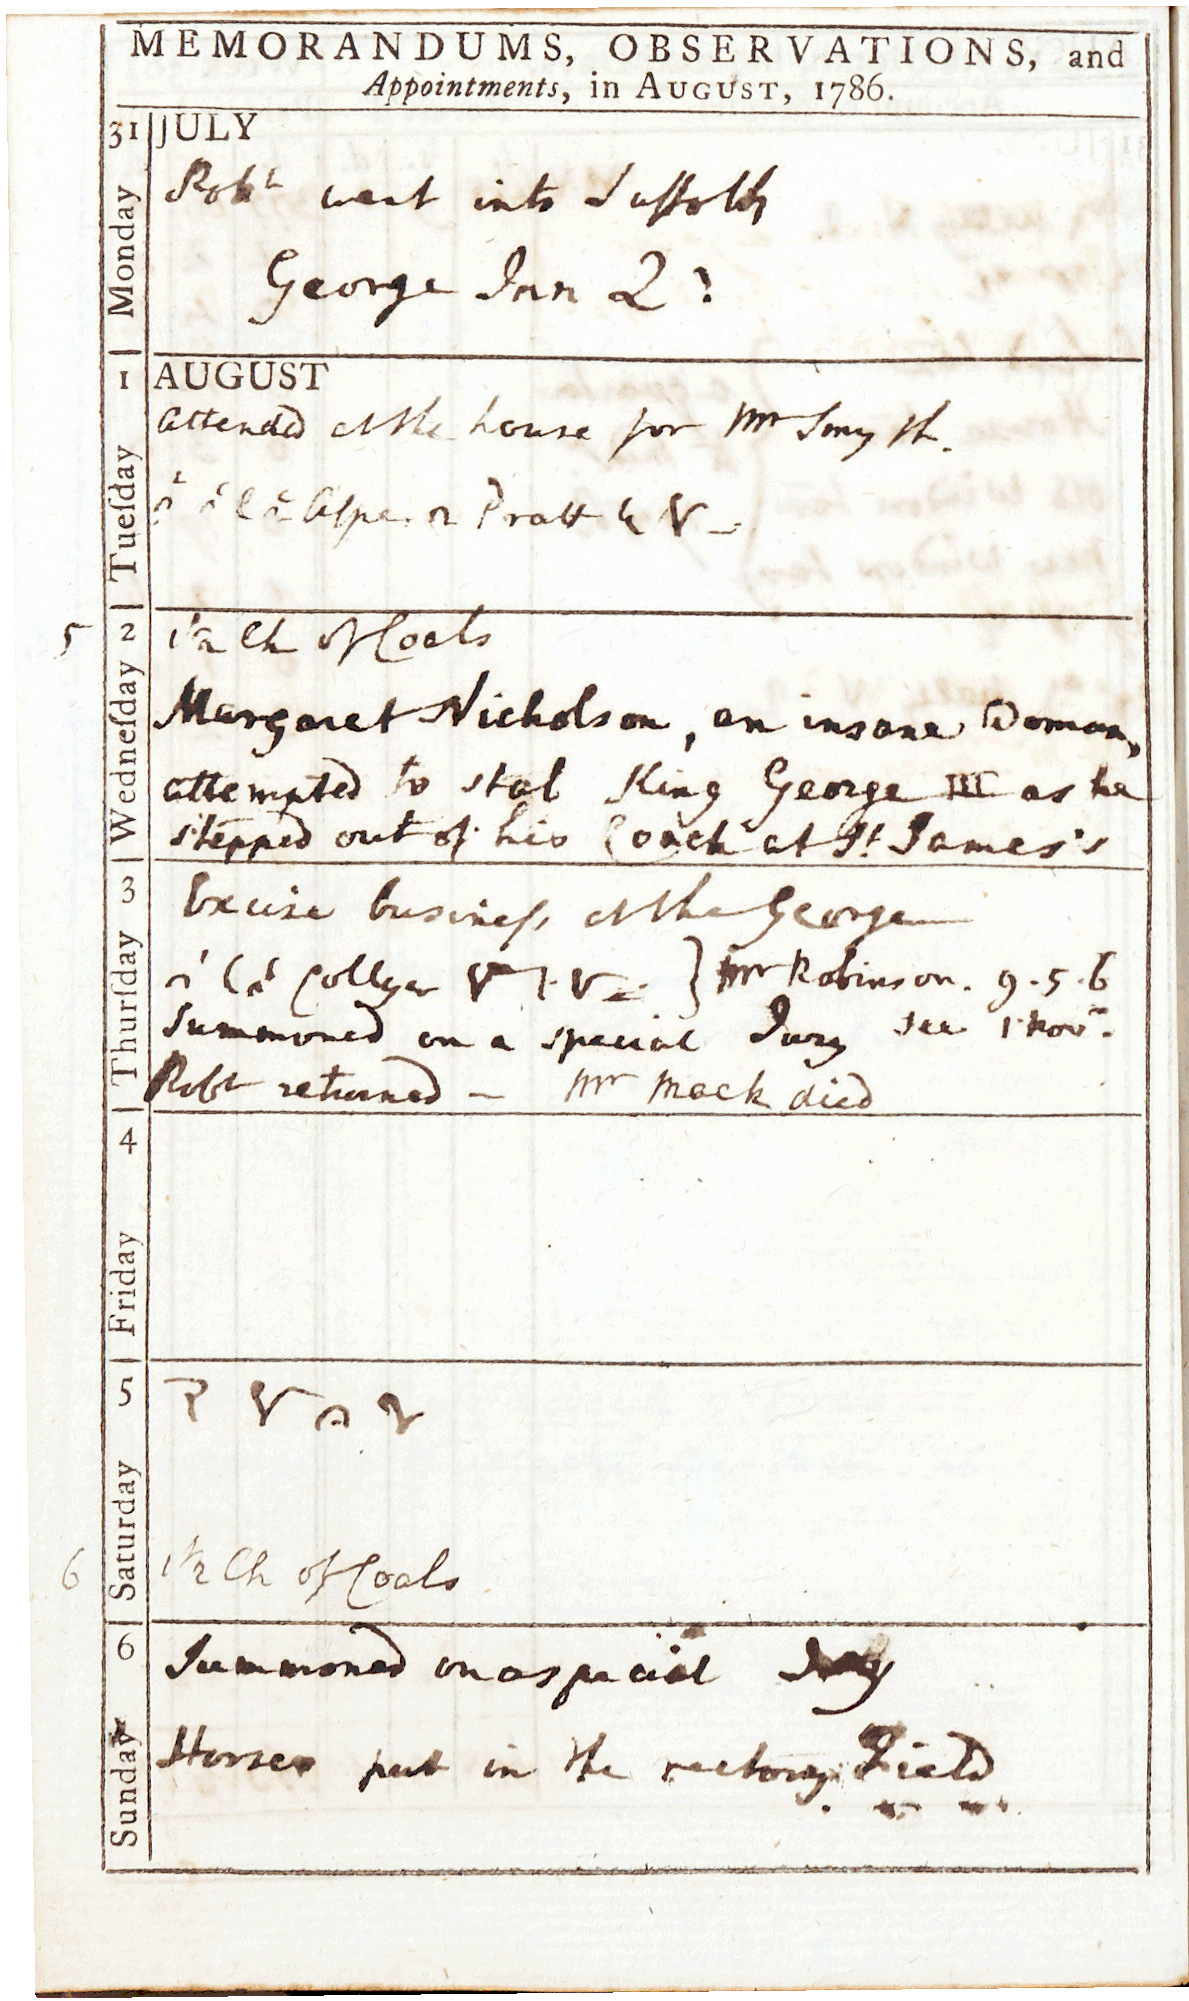 MEMORANDUMS, OBSERVATIONS, and
Appointments, in AUGUST, 1786.
31 JULY
Monday
Robt went into Suffolk
George Inn 2
1 AUGUST
Tueſday
attended at the house for Mr Smyth.
Pratt
5 2 Ch of Coals
Wedneſday
Margaret Nicholson, an insane Woman,
attempted to stab King George III as he
stepped out of his Coach at St James's
3 Excise busineſs at the George
Thurſday
Collyer } Mr Robinson. 9.5.6
Summoned on a special Jury see 1 Novr.
Robt returned – Mr Mack died
4
Friday
5
Saturday
6 Ch of Coals
6 Summoned on a special Jury
Sunday
Horses put in the rectory Field